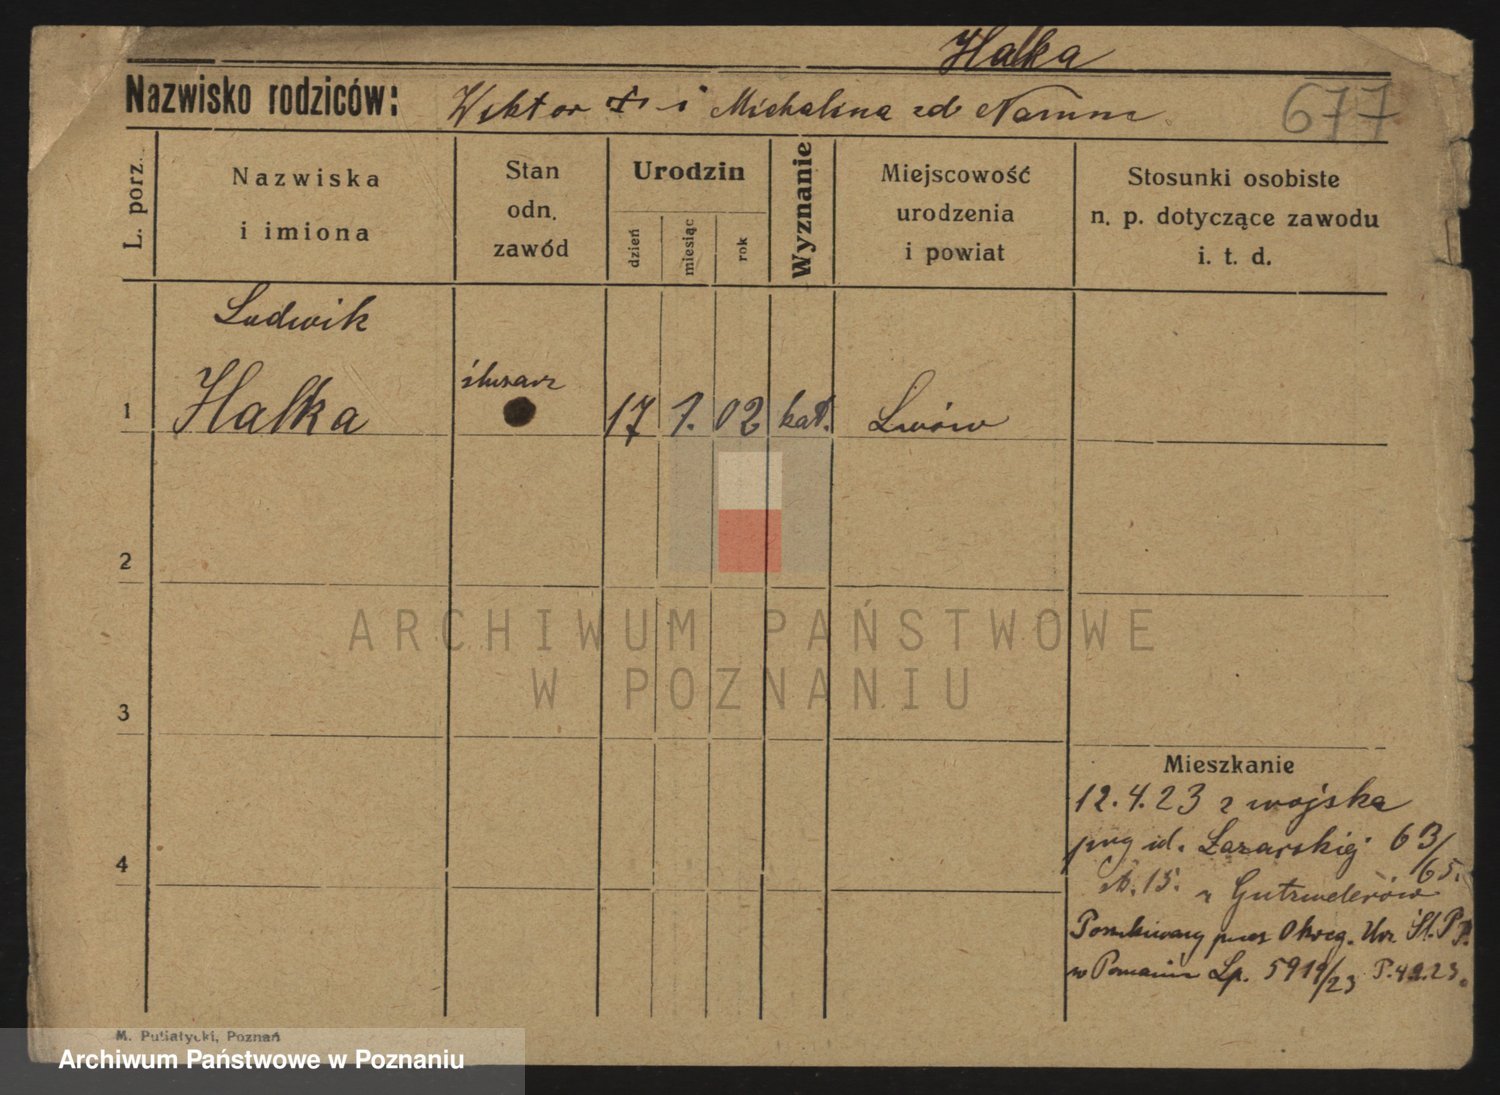 Halka
Nazwisko rodziców: Wiktor + i Michalina zd
677
L. porz.
Nazwiska
i imiona
Stan
odn.
zawód
Urodzin
dzień
miesiąc
rok
Wyznanie
Miejscowość
urodzenia
i powiat
Stosunki osobiste
n. p. dotyczące zawodu
i. t. d.
Ludwik
1 Halka ślusarz 17 1. 02 kat. Lwów
2
ARCHIWUM PAŃSTWOWE
W POZNANIU
3
Mieszkanie
12.4.23 z wojska
przy ul. Łazarskiej 63/65.
4
m. 15. u Gutzwelerów
Poszukiwany przez Okręg. Urz. Śl. P.P.
w Poznaniu Lp. 5919/23
M. Putiatycki, Poznań
Archiwum Państwowe w Poznaniu